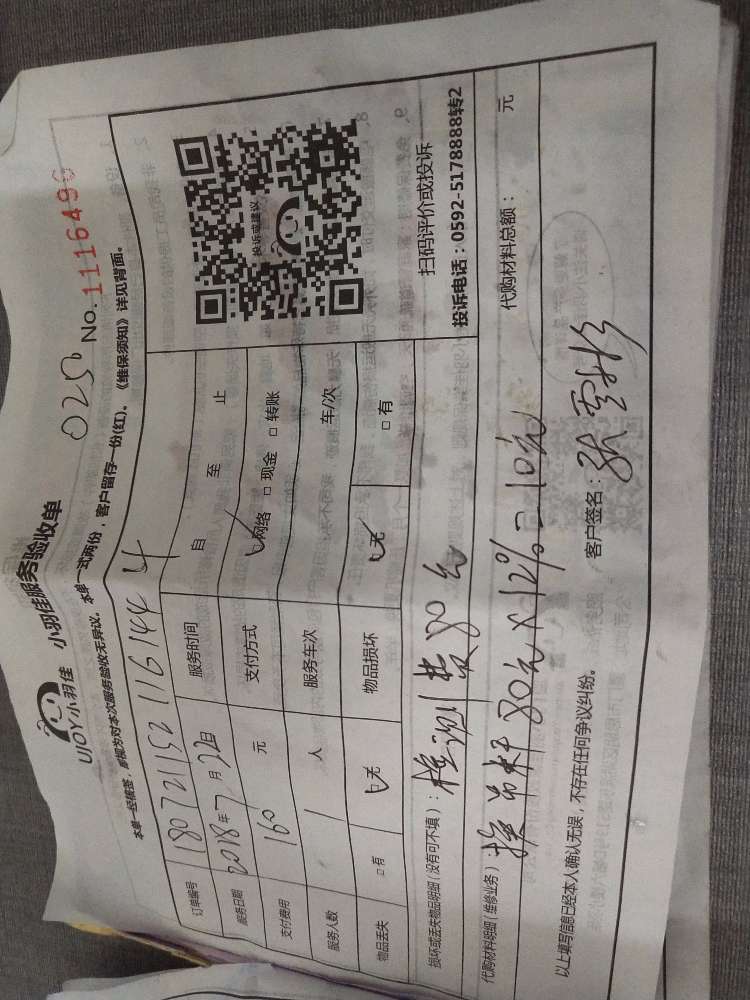 UJOY小羽佳 小羽佳服务验收单
025
No. 1116496
本单一经核签，即视为对本次服务验收无异议。本单一式两份，客户留存一份(红)。《维保须知》详见背面。
订单编号 180721152116144 4
服务日期 2018年7月22日 服务时间 自 至 止
支付费用 160 元 支付方式 ☑网络 □现金 □转账
服务人数 1 人 服务车次 车/次
物品丢失 □有 ☑无 物品损坏 ☑无 □有
投诉或建议
扫码评价或投诉
投诉电话：0592-5178888转2
损坏或丢失物品明细(没有可不填)：检测费80元
代购材料明细(维修业务)：换吊杆80元×12%=10元 代购材料总额： 元
以上填写信息已经本人确认无误，不存在任何争议纠纷。 客户签名：张雪彬